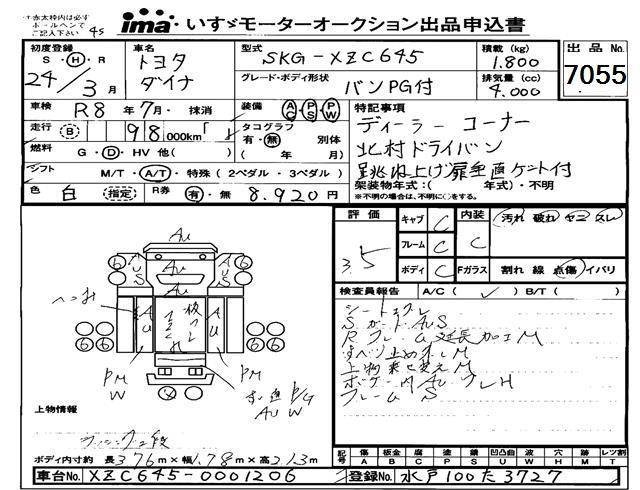 赤太枠内は必ず
ボールペンで
ima いすゞモーターオークション出品申込書
初度登録 S・H・R 24/3月
車名 トヨタ ダイナ
型式 SKG-XZC645
積載(kg) 1.800
出品No 7055
グレード・ボディ形状 バンPG付
排気量(cc) 4.000
車検 R8年7月・抹消
装備 AC PS PW
特記事項
走行 B 98 000km
タコグラフ 有・無 別体
ディーラーコーナー
燃料 G・D・HV 他( )
( 年 月)
北村ドライバン
シフト M/T・A/T・特殊(2ペダル・3ペダル)
跳ね上げ扉垂直ゲート付
色 白 (指定) R券 有・無 8.920円
架装物年式:( 年式)・不明
※不明の場合は、不明に○をする。
評価 3.5
キャブ C
フレーム C
ボディ C
内装 C
汚れ 破れ ヤニ スレ
Fガラス 割れ 線 点傷 イバリ
検査員報告 A/C( ✓ ) B/T( )
シートスレ
SガードAUS
Rフレーム延長加工M
すべり止め
上物乗せ変えM
フレームS
AU
AU
PM
W
PM
上物情報
ボディ内寸約 長3.76m×幅1.78m×高2.13m
記号 傷A 板金B 腐C 塗P 錆S 凹凸曲U 波W 穴H 跡M レツ割T
車台No. XZC645-0001206
登録No. 水戸100た3727